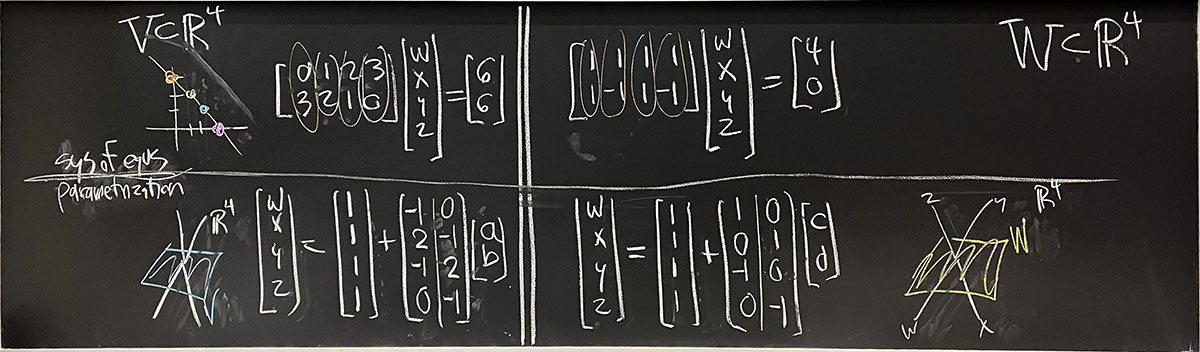 V⊂ℝ⁴
[0 1 2 3; 3 2 1 0] [w; x; y; z] = [6; 6]
[1 1 1 1; 1 -1 1 -1] [w; x; y; z] = [4; 0]
W⊂ℝ⁴
sys of eqns
parametrization
ℝ⁴
[w; x; y; z] = [1; 1; 1; 1] + [-1 0; 2 -1; -1 2; 0 -1] [a; b]
[w; x; y; z] = [1; 1; 1; 1] + [1 0; 0 1; -1 0; 0 -1] [c; d]
z y ℝ⁴
W
w x